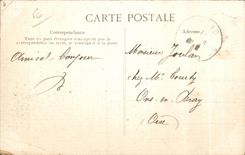 CARTE POSTALE
Correspondance
Adresse
Tous les pays étrangers n'acceptent pas la
correspondance au recto, se renseigner à la poste
Amical Bonjour
B
Monsieur Joulain
chez Mr
Ons en Bray
Oise